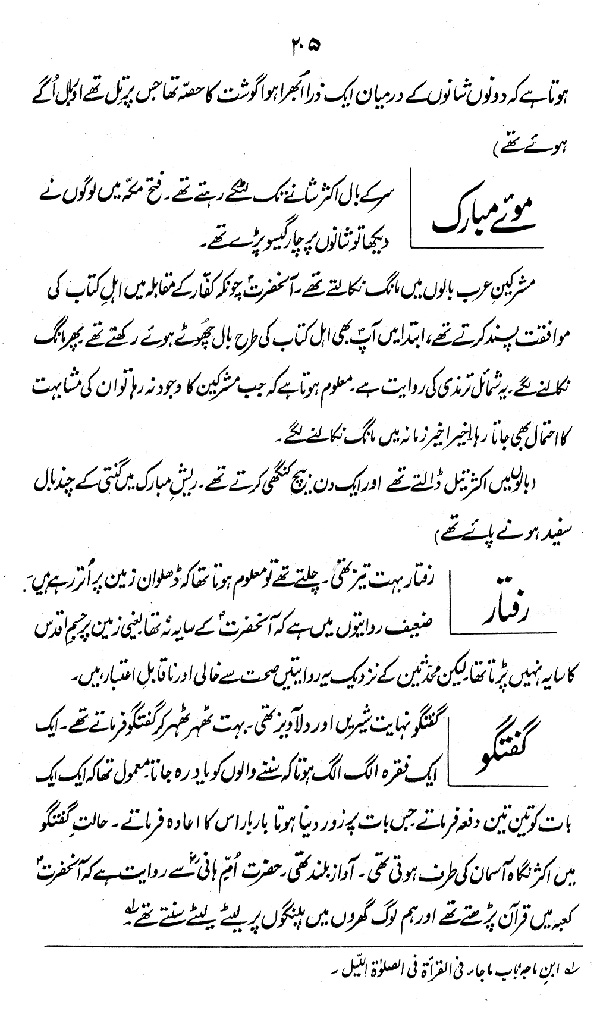 ۲۰۵
ہوتا ہے کہ دونوں شانوں کے درمیان ایک ذرا اُبھرا ہوا گوشت کا حصہ تھا جس پر تِل تھے اور بال اُگے
ہوئے تھے)
موئے مبارک
سر کے بال اکثر شانے تک لٹکے رہتے تھے۔ فتح مکہ میں لوگوں نے
دیکھا تو شانوں پر چار گیسو پڑے تھے۔
مشرکینِ عرب بالوں میں مانگ نکالتے تھے۔ آنحضرتؐ چونکہ کفار کے مقابلہ میں اہلِ کتاب کی
موافقت پسند کرتے تھے، ابتدا میں آپؐ بھی اہل کتاب کی طرح بال چھُوٹے ہوئے رکھتے تھے پھر مانگ
نکالنے لگے۔ یہ شمائل ترمذی کی روایت ہے۔ معلوم ہوتا ہے کہ جب مشرکین کا وجود نہ رہا تو ان کی مشابہت
کا احتمال بھی جاتا رہا، اخیر اخیر زمانہ میں مانگ نکالنے لگے۔
(بالوں میں اکثر تیل ڈالتے تھے اور ایک دن بیچ کنگھی کرتے تھے۔ ریشِ مبارک میں گنتی کے چند بال
سفید ہونے پائے تھے)
رفتار
رفتار بہت تیز تھی۔ چلتے تھے تو معلوم ہوتا تھا کہ ڈھلوان زمین پر اُتر رہے ہیں۔
ضعیف روایتوں میں ہے کہ آنحضرتؐ کے سایہ نہ تھا یعنی زمین پر جسمِ اقدس
کا سایہ نہیں پڑتا تھا لیکن محدثین کے نزدیک یہ روایتیں صحت سے خالی اور ناقابلِ اعتبار ہیں۔
گفتگو
گفتگو نہایت شیریں اور دلآویز تھی۔ بہت ٹھہر ٹھہر کر گفتگو فرماتے تھے۔ ایک
ایک فقرہ الگ الگ ہوتا کہ سننے والوں کو یاد رہ جاتا۔ معمول تھا کہ ایک ایک
بات کو تین تین دفعہ فرماتے جس بات پر زور دینا ہوتا بار بار اس کا اعادہ فرماتے۔ حالتِ گفتگو
میں اکثر نگاہ آسمان کی طرف ہوتی تھی۔ آواز بلند تھی۔ حضرت اُمّ ہانیؓ سے روایت ہے کہ آنحضرتؐ
کعبہ میں قرآن پڑھتے تھے اور ہم لوگ گھروں میں پلنگوں پر لیٹے لیٹے سنتے تھے ؎۱
؎۱ ابن ماجہ باب ماجاء فی القرأۃ فی الصلوٰۃ اللّیل۔